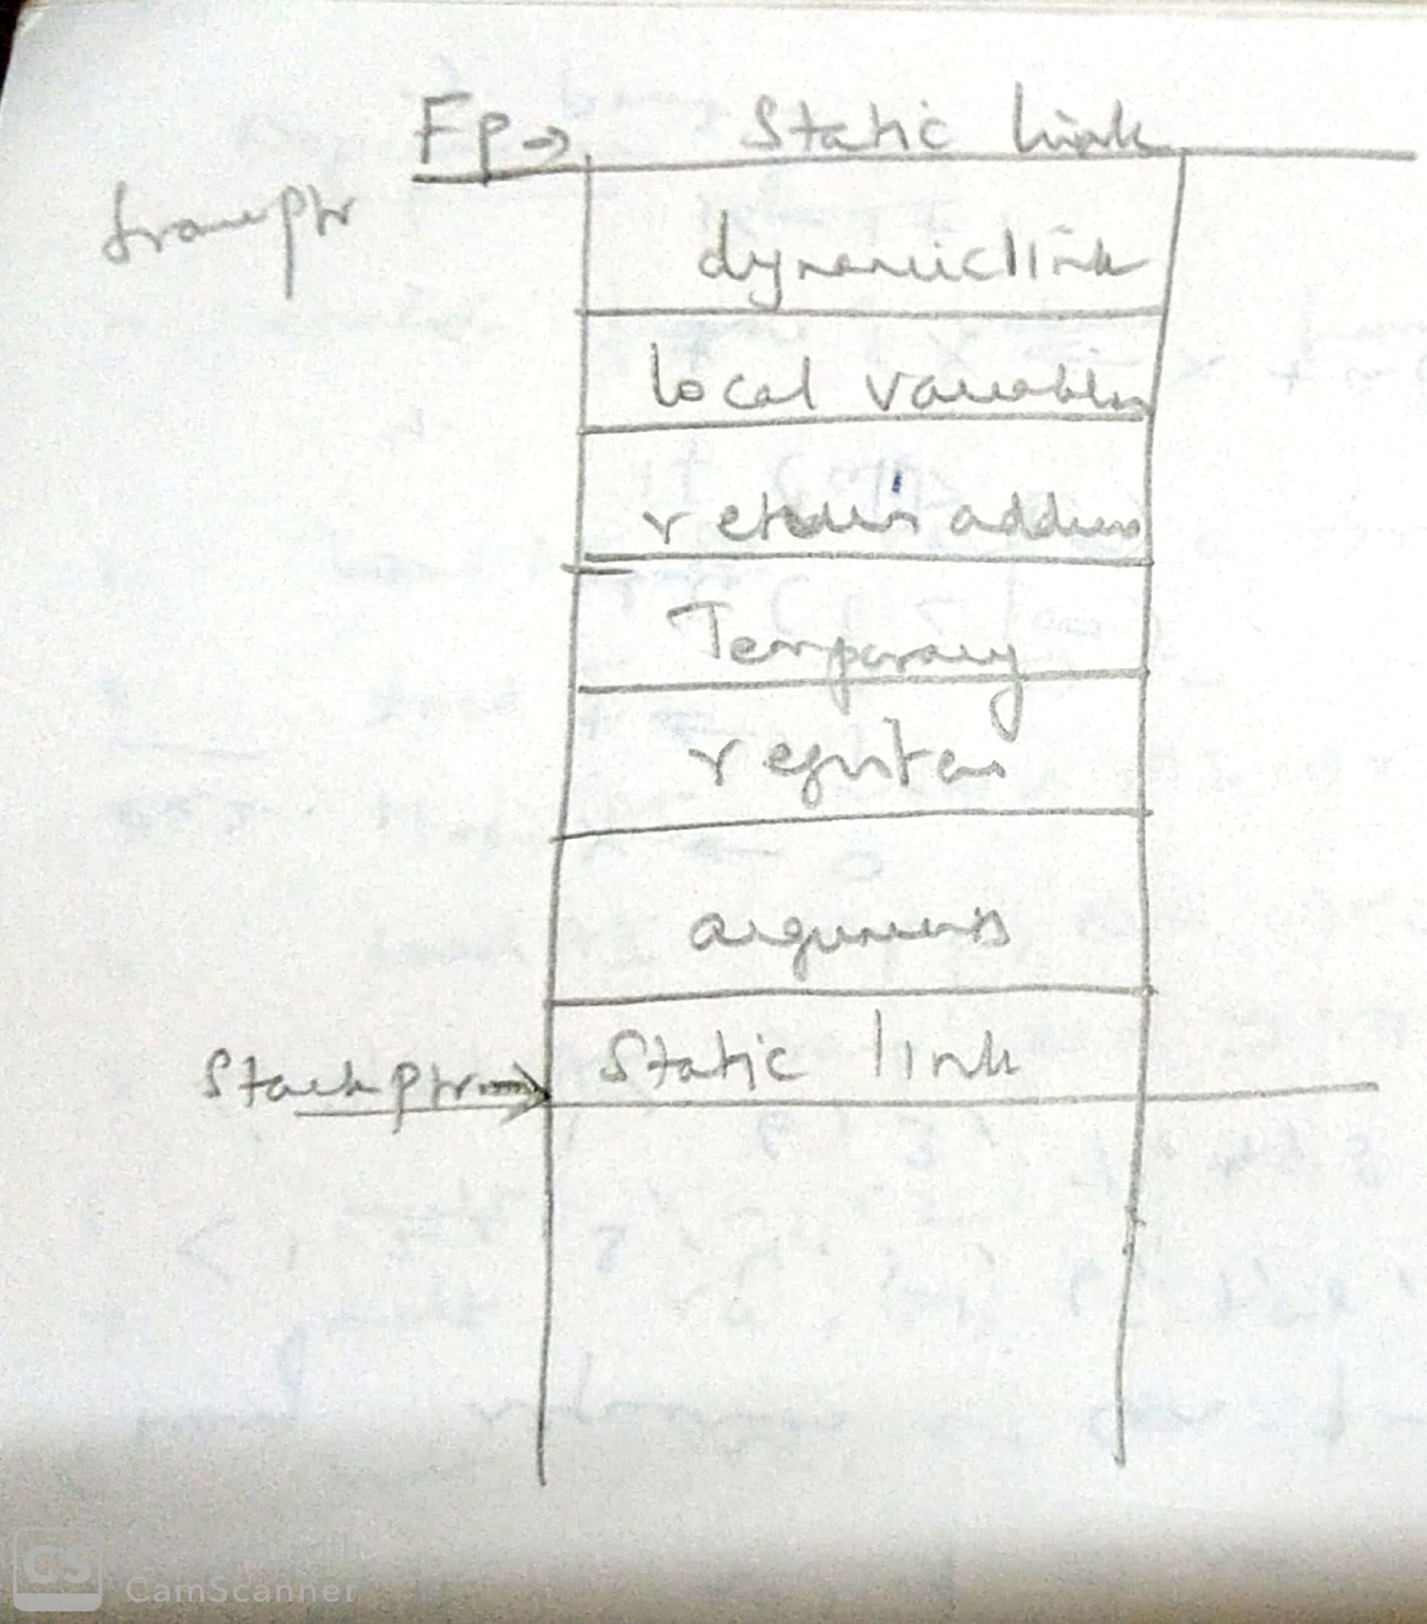 Fp→ Static link
frameptr
dynamic link
local variables
return address
Temporary
registers
arguments
Stack ptr → Static link
CS CamScanner